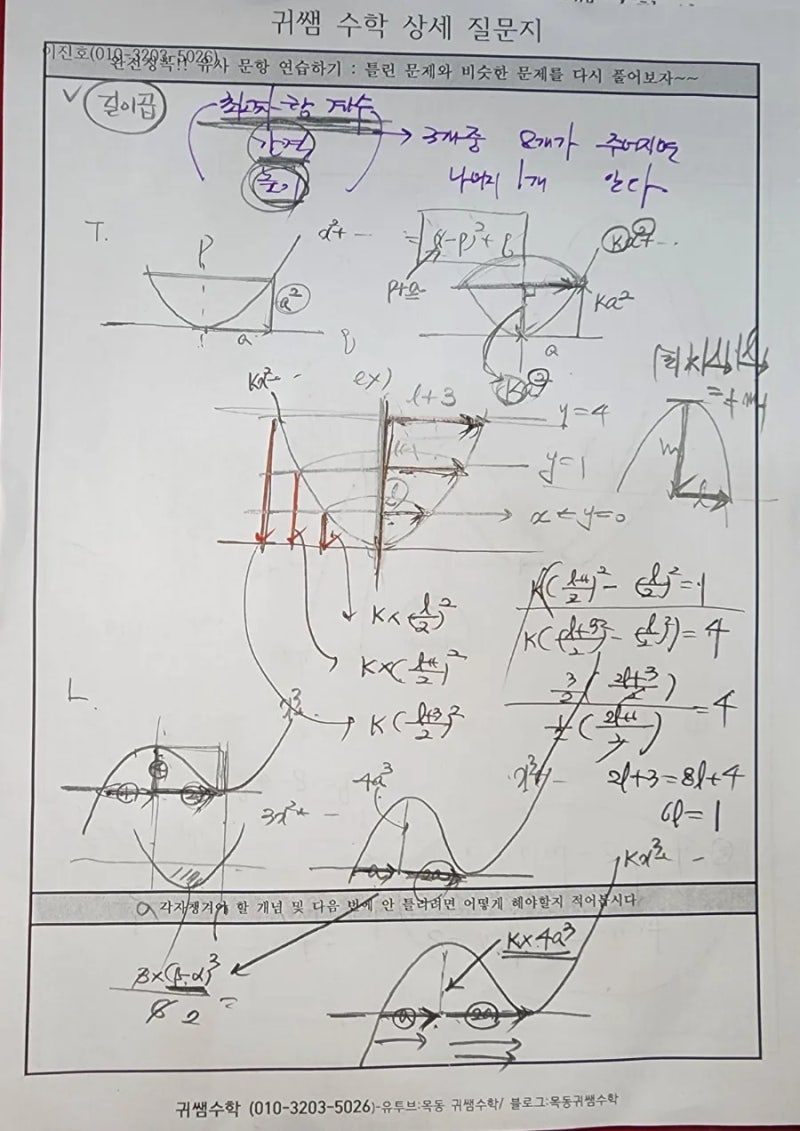 귀쌤 수학 상세 질문지
이진호(010-3203-5026)
완전정복!! 유사 문항 연습하기 : 틀린 문제와 비슷한 문제를 다시 풀어보자~~
길이곱
최고차항 계수
간격
높이
→ 3개중 2개가 주어지면
나머지 1개 안다.
T.
P
x²+ ...
= (x-p)²+q
Kx²+ ...
p+a
a²
a
Ka²
a
Ka²
Kx²- -
ex)
l+3
y=4
l+1
y=1
l
x ← y=0
m
l
K×(l/2)²
K×(l+1/2)²
K(l+3/2)²
K(l+1/2)² - (l/2)² = 1
K((l+3/2)² - (l/2)²) = 4
3/2 (2l+3/2)
1/2 (2l+1/2) = 4
2l+3=8l+4
6l=1
L.
x³
3x²+ -
4a³
x³+ -
a
2a
Kx³- -
각자챙겨야 할 개념 및 다음 번에 안 틀리려면 어떻게 해야할지 적어봅시다
3×(β-α)³
6 2 =
K×4a³
a
2a
귀쌤수학 (010-3203-5026)-유투브:목동 귀쌤수학/ 블로그:목동귀쌤수학